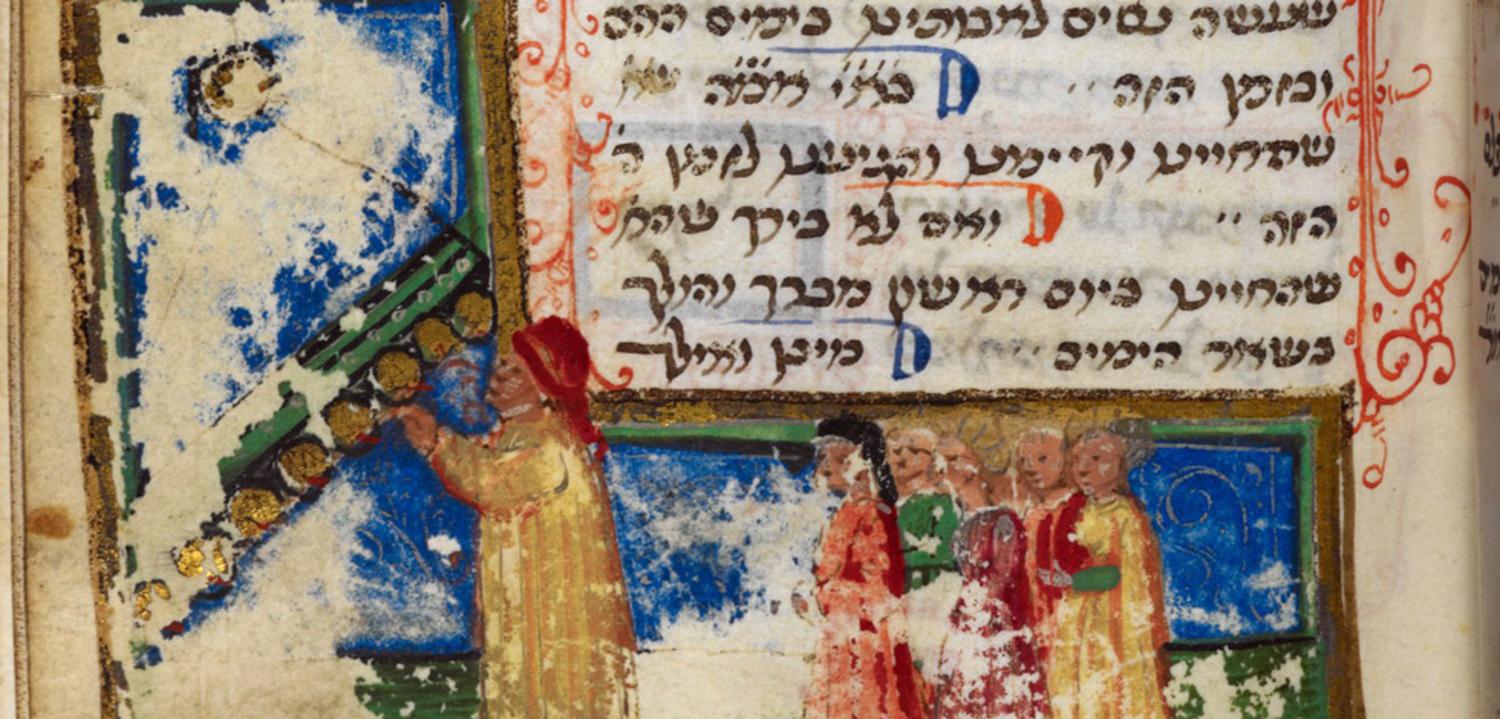 שעשה נסים לאבותינו בימים ההם
ובזמן הזה ·· בא״י אמ״ה
שהחיינו וקיימנו והגיענו לזמן ה
הזה ·· ואם לא בירך שהח
שהחיינו ביום ראשון מברך והולך
בשאר הימים מיכן ואילך